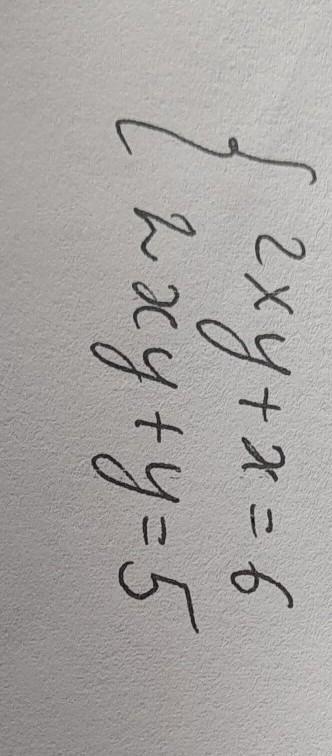 2xy + x = 6
2xy + y = 5